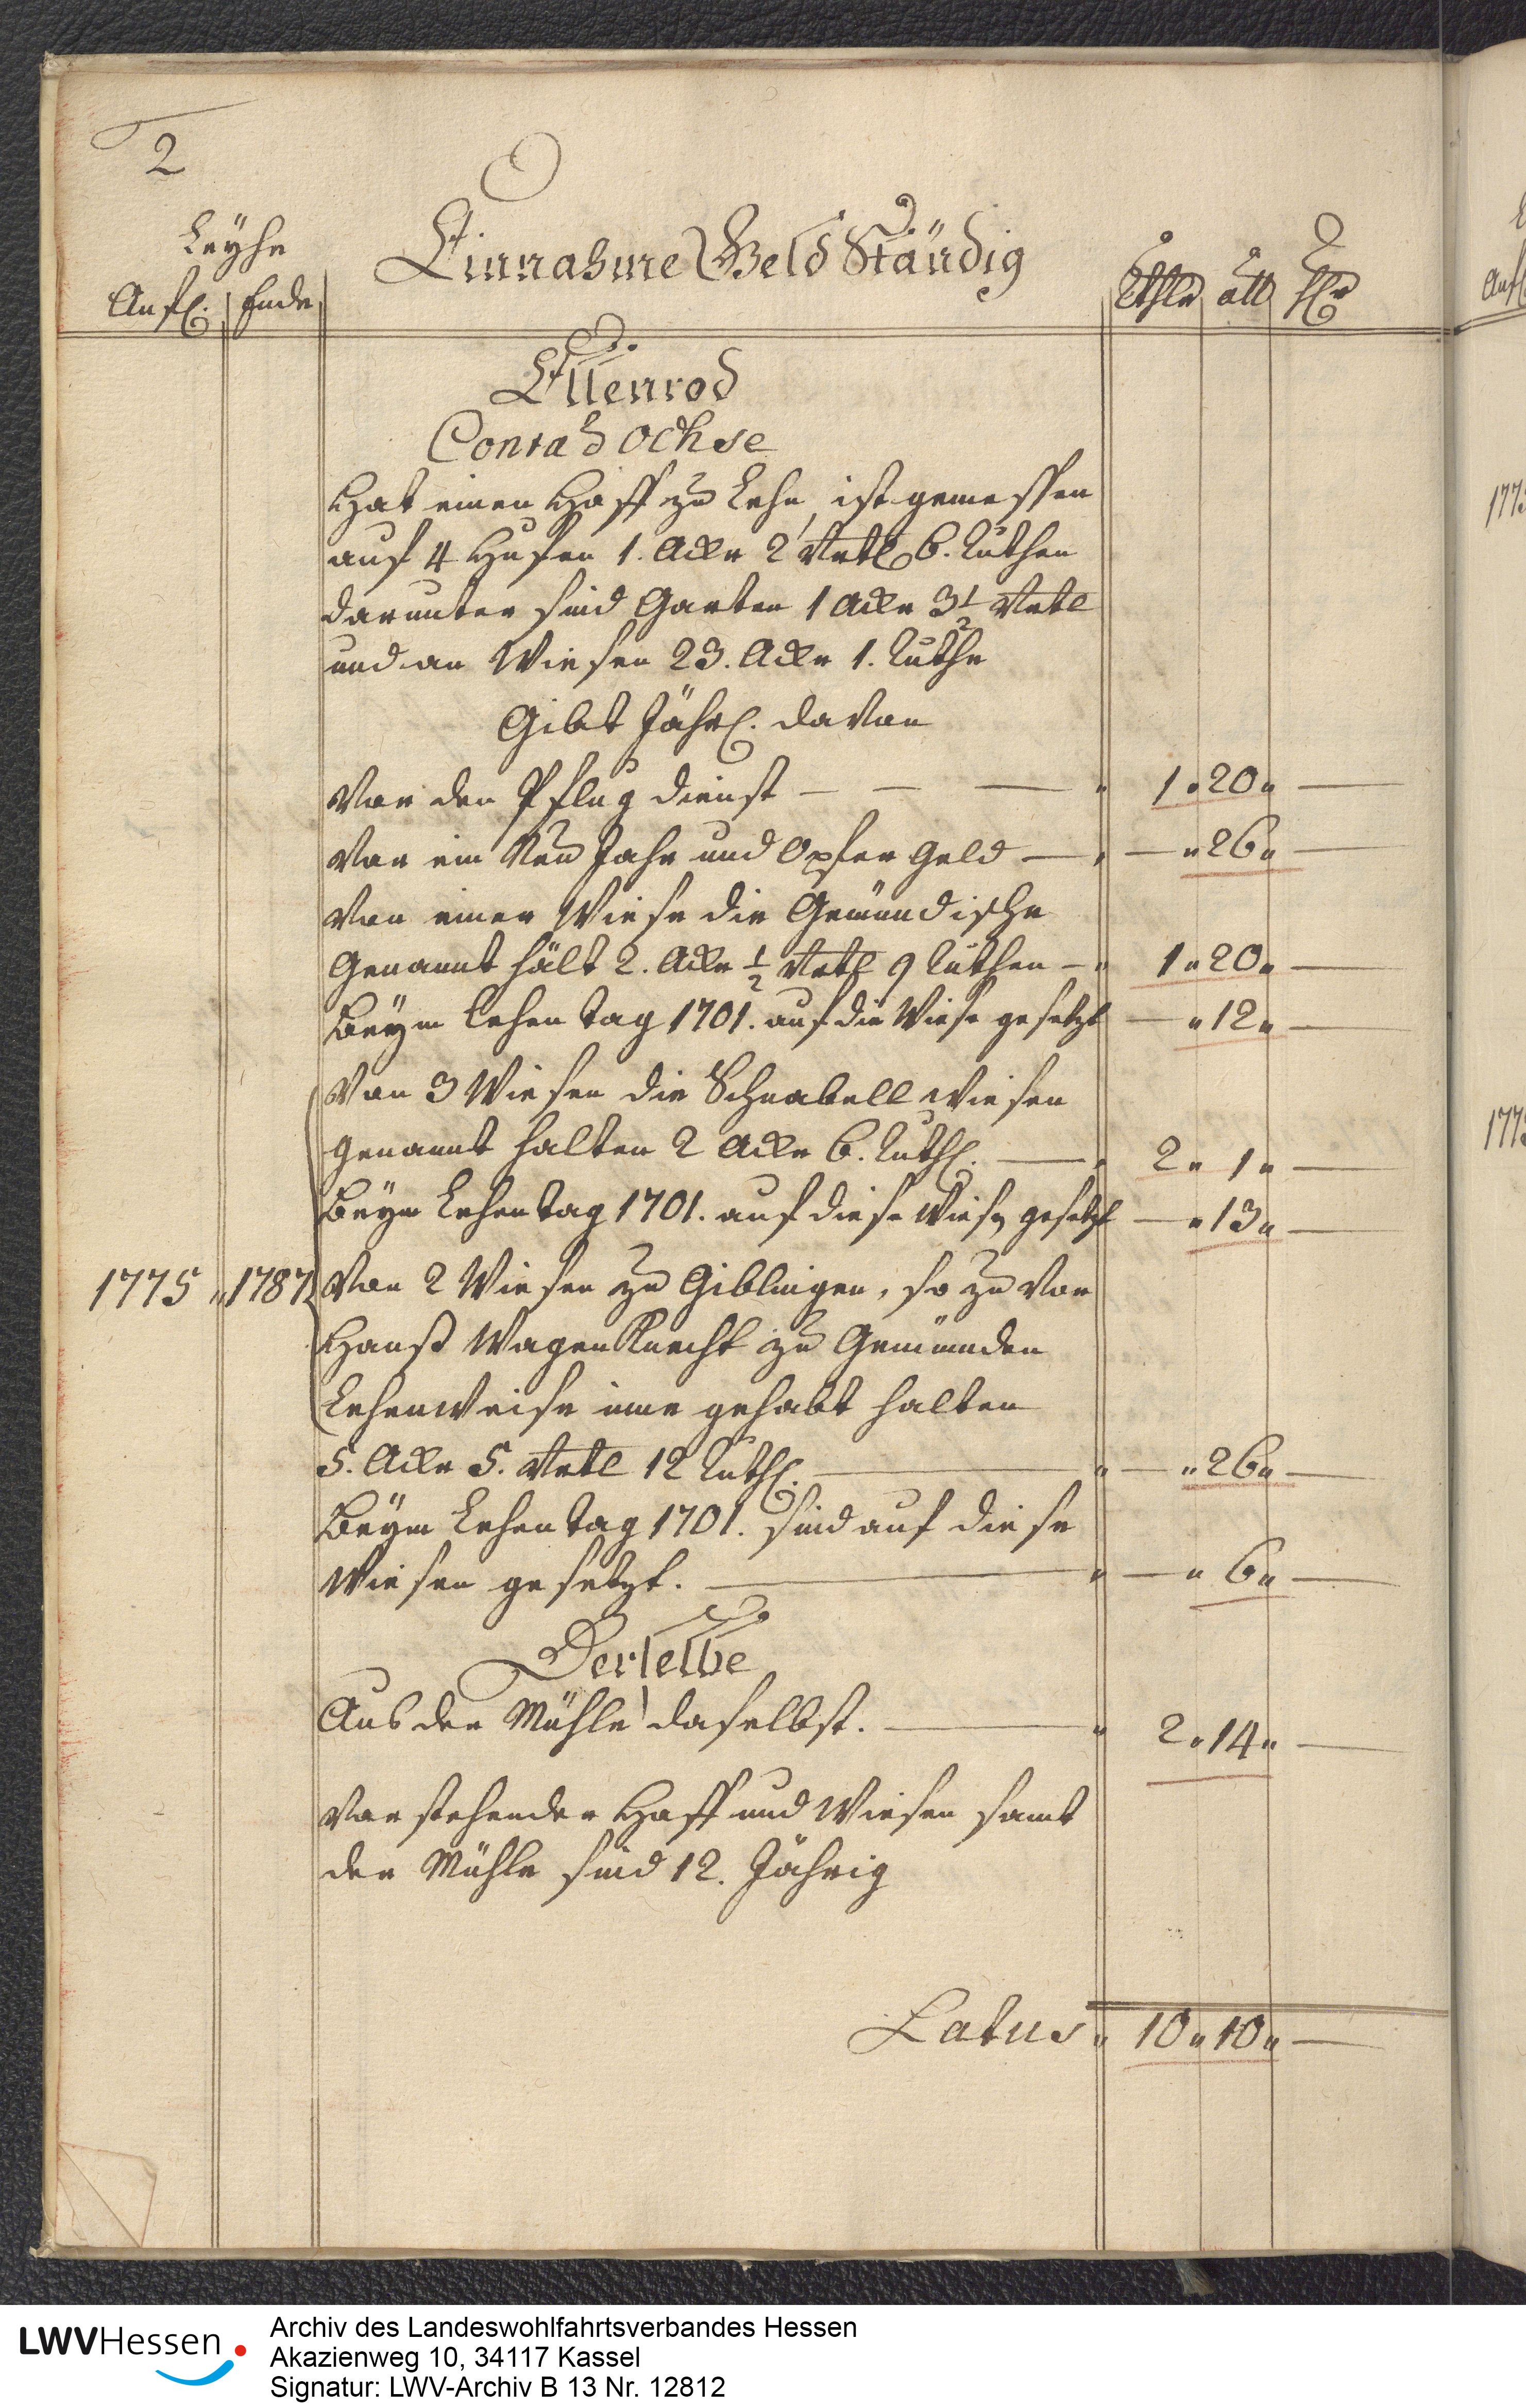 2
Leyhe
Einnahme Geld Ständig
Anf. Ende
Rthlr alb hlr
Ellenrod
Conrad Ochse
Hat einen Hoff zu Lehn, ist gemessen
auf 4 Hufen 1. Acker 2 Vrtl 6. Ruthen
darunter sind Garten 1 Acker 3½ Vrtl
und an Wiesen 23. Acker 1. Ruthe
Gibt Jährl. davon
Vor den Pflug dienst — — — 1 " 20 " —
Vor ein Neu Jahr und Opfer Geld — — " 26 " —
Von einer Wiese die Gemündische
Genannt hält 2. Acker ½ Vrtl 9 Ruthen — 1 " 20 " —
Beym Lehen tag 1701. auf die Wiese gesetzt — " 12 " —
Von 3 Wiesen die Schnabell wiesen
genannt halten 2 Acker 6. Ruth. — 2 " 1 " —
Beym Lehen tag 1701. auf diese Wiesen gesetzt — " 13 " —
1775 " 1787 Von 2 Wiesen zu Giblingen, so zu vor
Hanß WagenKnecht zu Gemünden
Lehenweise inne gehabt halten
5. Acker 5. Vrtl 12 Ruth. — — " 26 " —
Beym Lehen tag 1701. sind auf diese
Wiesen gesetzt. — — " 6 " —
Derselbe
Aus der Mühle daselbst. — 2 " 14 " —
Vorstehender Hoff und Wiesen samt
der Mühle sind 12. Jährig
Latus " 10 " 10 " —
1775
1775
LWVHessen
Archiv des Landeswohlfahrtsverbandes Hessen
Akazienweg 10, 34117 Kassel
Signatur: LWV-Archiv B 13 Nr. 12812